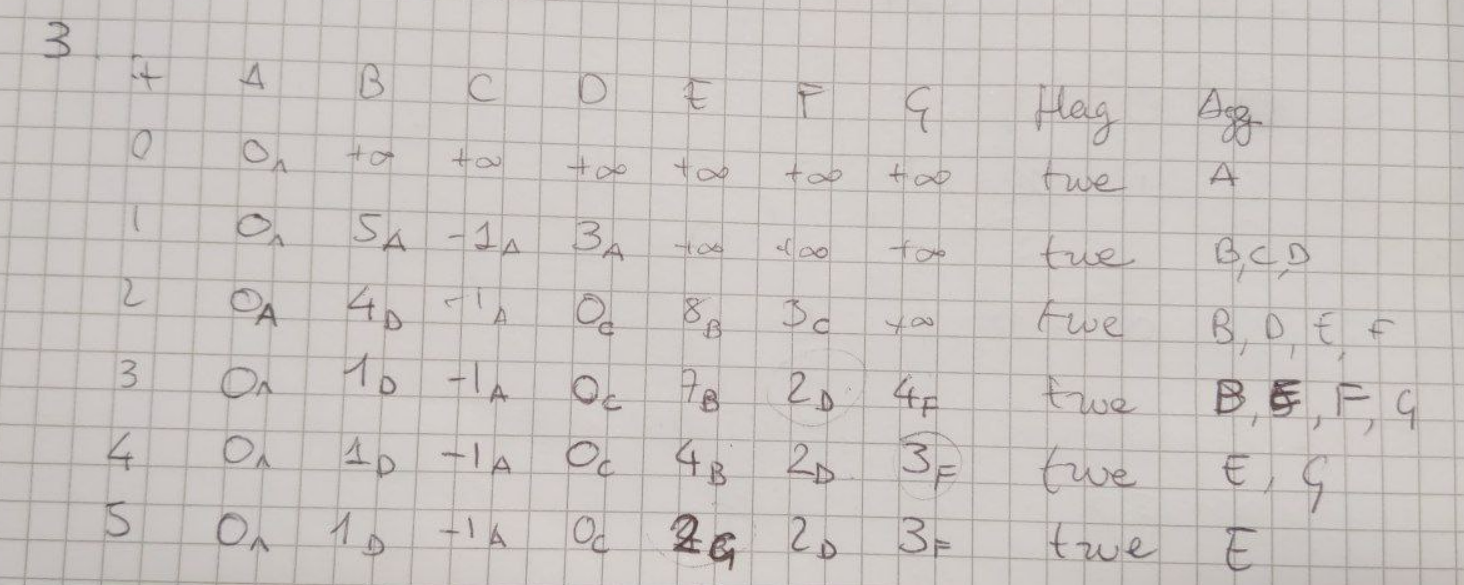 3.
it A B C D E F G flag Agg
0 0A +∞ +∞ +∞ +∞ +∞ +∞ true A
1 0A 5A -1A 3A +∞ +∞ +∞ true B, C, D
2 0A 4D -1A 0C 8B 3C +∞ true B, D, E, F
3 0A 1D -1A 0C 7B 2D 4F true B, E, F, G
4 0A 1D -1A 0C 4B 2D 3F true E, G
5 0A 1D -1A 0C 2G 2D 3F true E